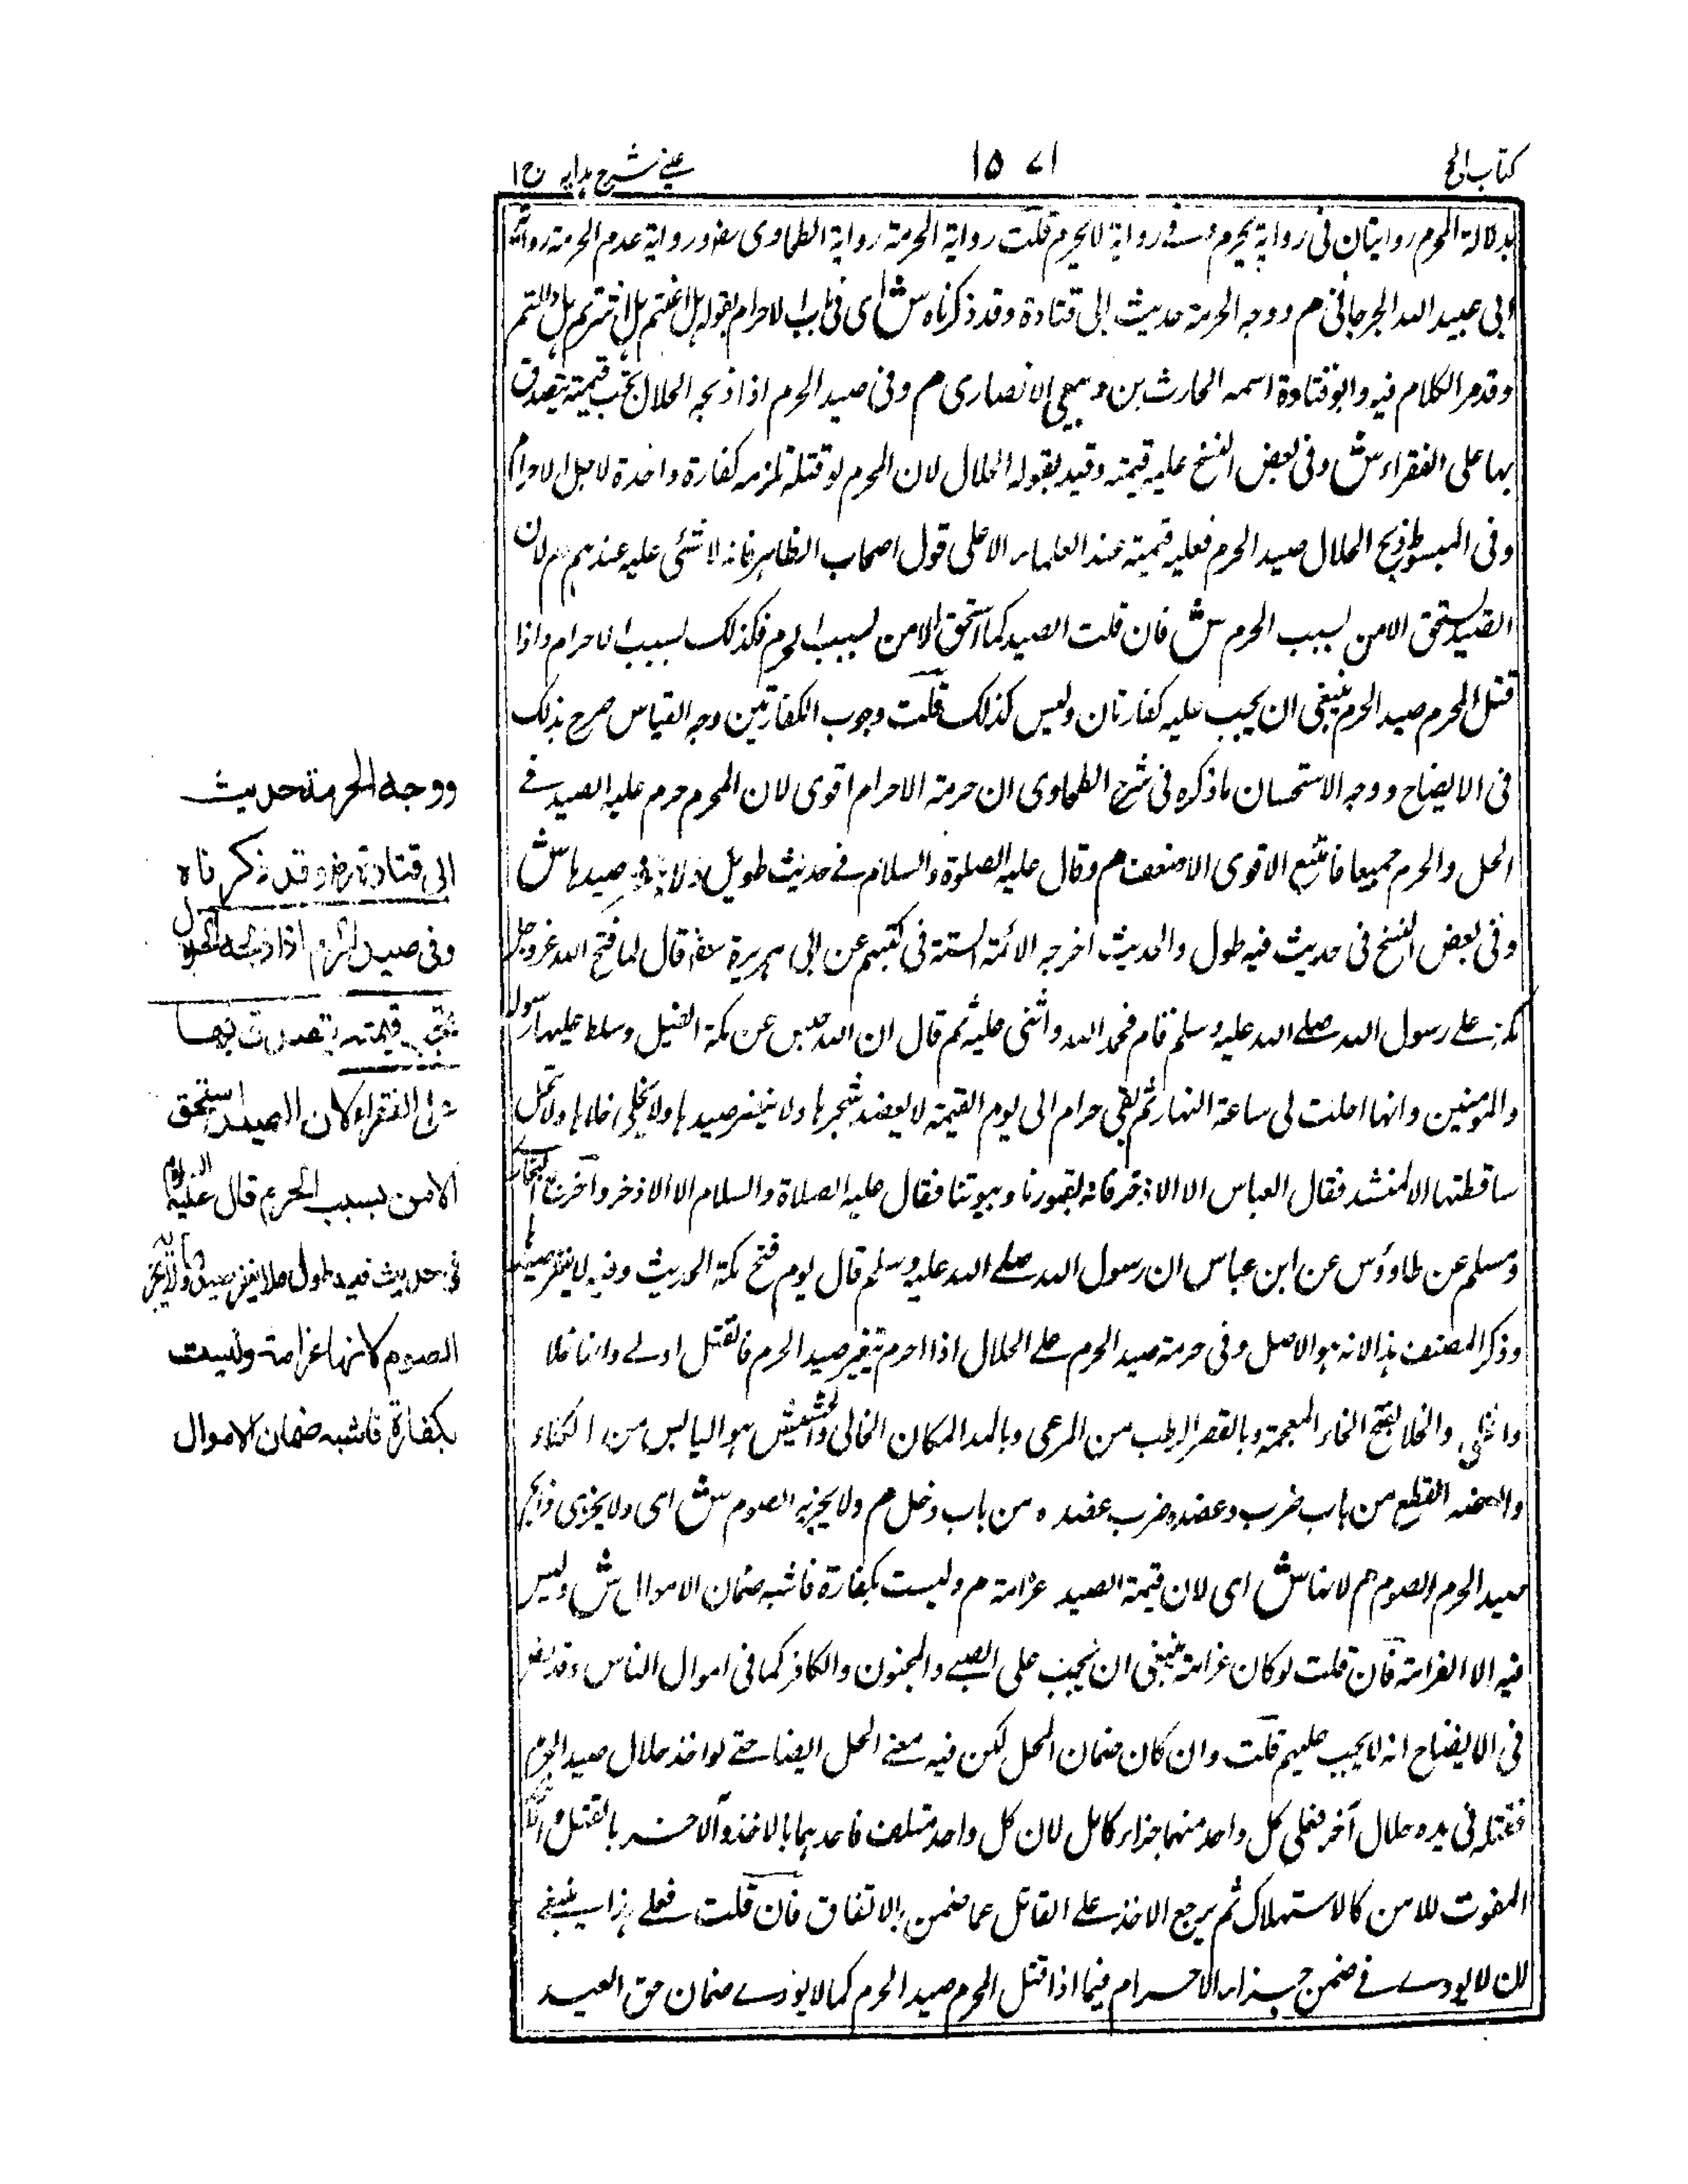 كتاب الحج
١٥٧١
عيني شرح هدايه ج١
بدلالة المحرم روايتان فى رواية يحرم وفى رواية لا يحرم قلت رواية الحرمة رواية الطحاوى ورواية عدم الحرمة رواية
ابى عبيد الله الجرجانى م ووجه الحرمة حديث ابى قتادة وقد ذكرناه ش اى فى باب الاحرام بقوله هل اعنتم هل اشرتم هل دللتم
وقد مر الكلام فيه وابو قتادة اسمه الحارث بن ربيعى الانصارى م وفى صيد الحرم اذا ذبحه الحلال تجب قيمته يتصدق
بها على الفقراء ش وفى بعض النسخ عليه قيمته وقيد بقوله الحلال لان المحرم لو قتله تلزمه كفارة واحدة لاجل الاحرام
وفى المبسوط ذبح الحلال صيد الحرم فعليه قيمته عند العلماء الا على قول اصحاب الظاهر فانه لا شئى عليه عندهم م لان
الصيد استحق الامن بسبب الحرم ش فان قلت الصيد كما استحق الامن بسبب الحرم فكذلك بسبب الاحرام واذا
قتل المحرم صيد الحرم ينبغى ان يجب عليه كفارتان وليس كذلك قلت وجوب الكفارتين وجه القياس صرح بذلك
فى الايضاح ووجه الاستحسان ما ذكره فى شرح الطحاوى ان حرمة الاحرام اقوى لان المحرم حرم عليه الصيد فى
الحل والحرم جميعا فاتبع الاقوى الاضعف م وقال عليه الصلوة والسلام فى حديث طويل ولا ينفر صيدها ش
وفى بعض النسخ فى حديث فيه طول والحديث اخرجه الائمة الستة فى كتبهم عن ابى هريرة قال لما فتح الله عزوجل
مكة على رسول الله صلى الله عليه وسلم قام فحمد الله واثنى عليه ثم قال ان الله حبس عن مكة الفيل وسلط عليها رسوله
والمؤمنين وانها احلت لى ساعة النهار ثم بقى حرام الى يوم القيمة لا يعضد شجرها ولا ينفر صيدها ولا يختلى خلاها ولا تحل
ساقطتها الا لمنشد فقال العباس الا الاذخر فانه لقبورنا وبيوتنا فقال عليه الصلاة والسلام الا الاذخر واخرج البخارى
ومسلم عن طاوؤس عن ابن عباس ان رسول الله صلى الله عليه وسلم قال يوم فتح مكة الحديث وفيه لا ينفر صيدها
وذكر المصنف هذا لانه هو الاصل وفى حرمة صيد الحرم على الحلال اذا احرم تنفير صيد الحرم فالقتل اولى
والخلا بفتح الخاء المعجمة وبالقصر الرطب من المرعى وبالمد المكان الخالى والحشيش هو اليابس من الكلاء
القطع من باب ضرب وعضده ضرب عضده من باب دخل م ولا يجزيه الصوم ش اى ولا يجزى ذابح
صيد الحرم الصوم م لانها ش اى لان قيمة الصيد غرامة م وليست بكفارة فاشبه ضمان الاموال ش وليس
فيه الا الغرامة فان قلت لو كان غرامة ينبغى ان يجب على الصبى والمجنون والكافر كما فى اموال الناس وقد نص
فى الايضاح انه لا يجب عليهم قلت وان كان ضمان المحل لكن فيه معنى الحل ايضا حتى لو اخذ حلال صيد الحرم
فقتله فى يده حلال آخر فعلى كل واحد منهما جزاء كامل لان كل واحد متلف فاحدهما بالاخذ والاخر بالقتل
المفوت للامن كالاستهلاك ثم يرجع الاخذ على القاتل عما ضمن بالاتفاق فان قلت فعلى هذا ينبغى
ان لا يودى فى ضمن جزاء الاحرام فيما اذا قتل المحرم صيد الحرم كما لا يودى ضمان حق العبد
ووجه الحرمة حديث
ابى قتادة رض وقد ذكرناه
وفى صيد الحرم اذا ذبحه الحلال
تجب قيمته يتصدق بها
على الفقراء لان الصيد استحق
الامن بسبب الحرم قال عليه السلام
فى حديث فيه طول ولا ينفر صيدها ولا يجزيه
الصوم لانها غرامة وليست
بكفارة فاشبه ضمان الاموال